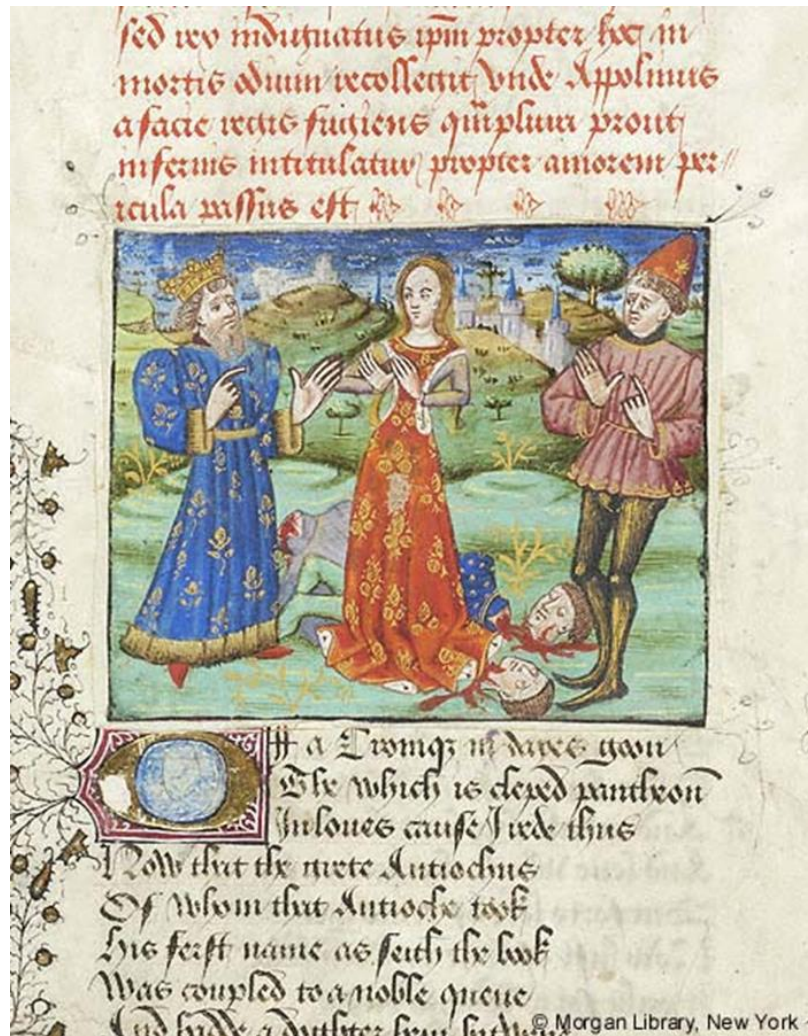 sed rex indignatus ip̄m propter hoc in
mortis odium recollegit vnde Appolinus
a facie regis fugiens quāplura prout
inferius intitulatur propter amorem per//
icula passus est
Off a Croniqȝ in daies goon
The which is cleped pantheon̄
In loues cause I rede thus
How that the grete Antiochus
Of whom that Antioche took
His ferst name as seith the book
Was coupled to a noble quene
And hadde a
© Morgan Library, New York